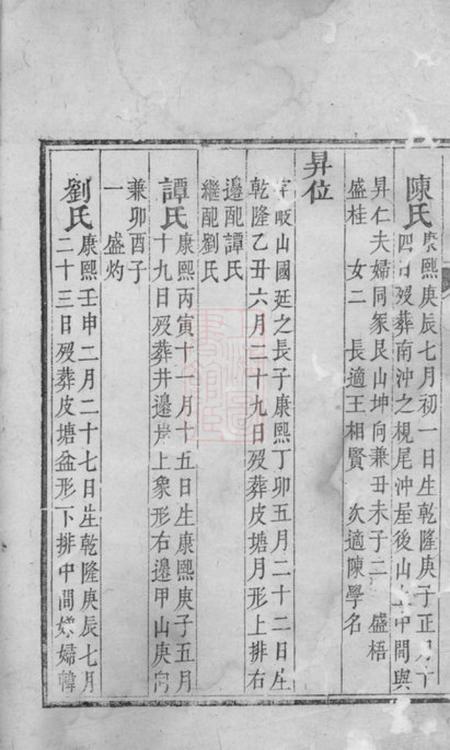 陳氏 康熙庚辰七月初一日生乾隆庚子正月十
四日歿葬南沖之梘尾沖屋後山 中間與
昇仁夫婦同冢艮山坤向兼丑未子二 盛梧
盛桂 女二 長適王相賢 次適陳學名
昇位
字岐山國廷之長子康熙丁卯五月二十二日生
乾隆乙丑六月二十九日歿葬皮塘月形上排右
邊配譚氏
繼配劉氏
譚氏 康熙丙寅十一月十五日生康熙庚子五月
十九日歿葬井邊岸上象形右邊甲山庚向
兼卯酉子
一 盛灼
劉氏 康熙壬申二月二十七日生乾隆庚辰七月
二十三日歿葬皮塘盆形下排中間媳婦韓